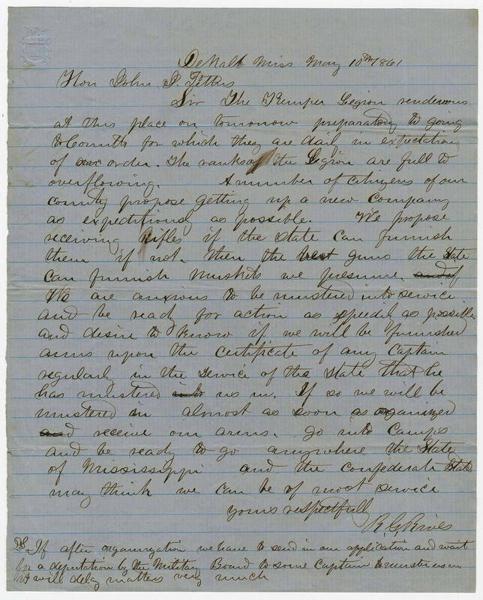 DeKalb Miss May 10th 1861
Hon John J. Pettus
Sir The Kemper Legion rendevous
at this place on tomorrow preparatory to going
to Corinth for which they are dail in expectation
of our order. The ranks of the Legion are full to
overflowing. A number of citizens of our
county propose getting up a new Company
as expeditiously as possible. We propose
receiving Rifles if the State can furnish
them if not, then the best guns the State
can furnish muskets we presume and if
We are anxious to be mustered into service
and be ready for action as speedy as possible
and desire to know if we will be furnished
arms upon the certificate of any Captain
regularly in the service of the State that he
has mustered into us in. If so we will be
mustered in almost as soon as organized
and receive our arms. go into Camps
and be ready to go anywhere the State
of Mississippi and the confederate States
may think we can be of most service
yours respectfull
R. G. Rives
PS If after organization we have to send in our application and wait
for a deputation by the Military Board to some Captain to muster us in
it will delay matters very much